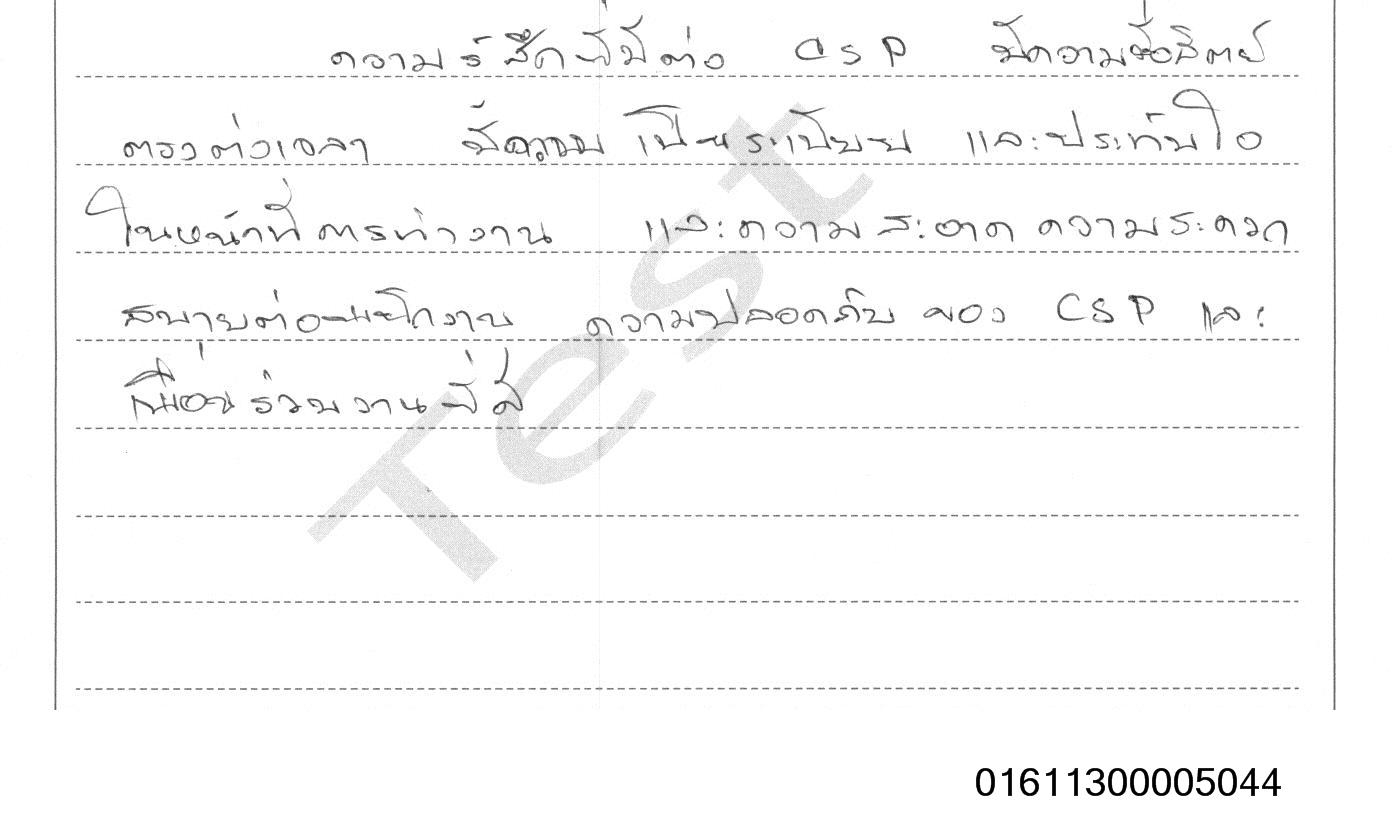 ความรู้สึกที่มีต่อ CSP มีความซื่อสัตย์
ตรงต่อเวลา มีความเป็นระเบียบ และประทับใจ
ในหน้าที่การทำงาน และความสะอาด ความสะดวก
สบายต่อพนักงาน ความปลอดภัย ของ CSP และ
เพื่อนร่วมงานที่ดี
Test
01611300005044